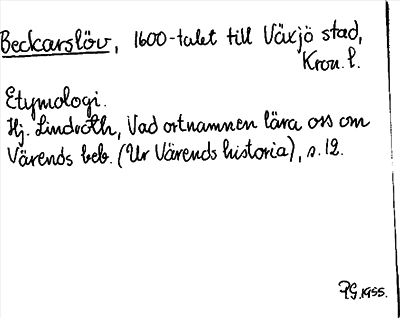 Beckarslöv, 1600-talet till Växjö stad,
Kron. l.
Etymologi.
Hj. Lindroth, Vad ortnamnen lära oss om
Värends beb. (Ur Värends historia), s. 12.
P.G. 1955.